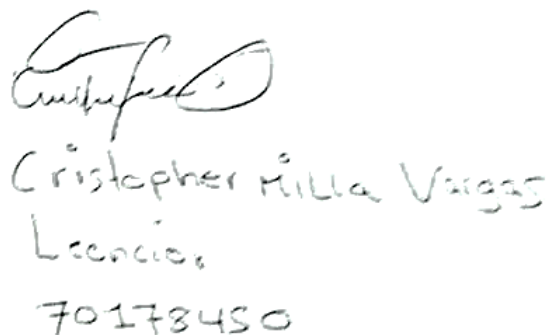 Cristopher Milla Vargas
Leencio.
70178450